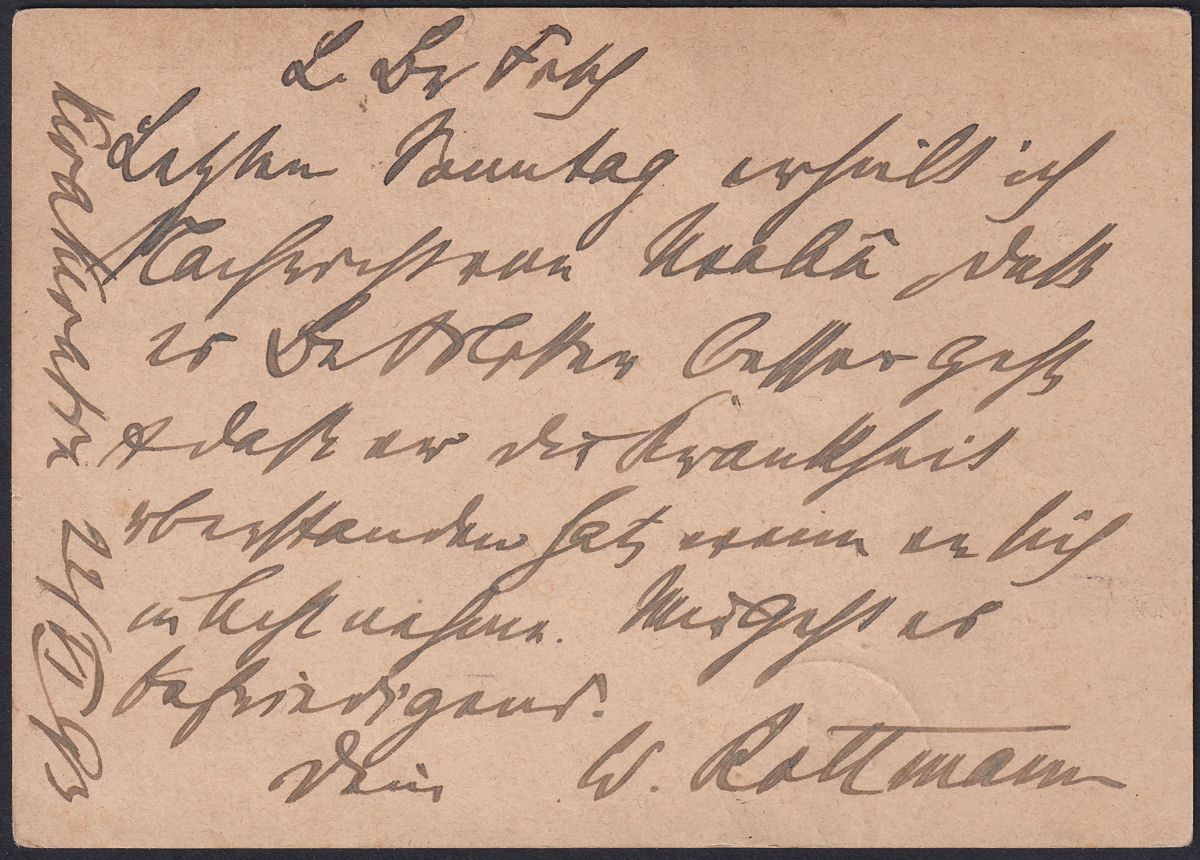 L. Br
Letzten Sonntag erhielt ich
Nachricht von Nsabâ, daß
es Br besser geht
& daß er die Krankheit
überstanden hat, wenn er sich
in Acht nehme. Mir geht es
befriedigend.
Dein W. Rottmann
24/VI 93